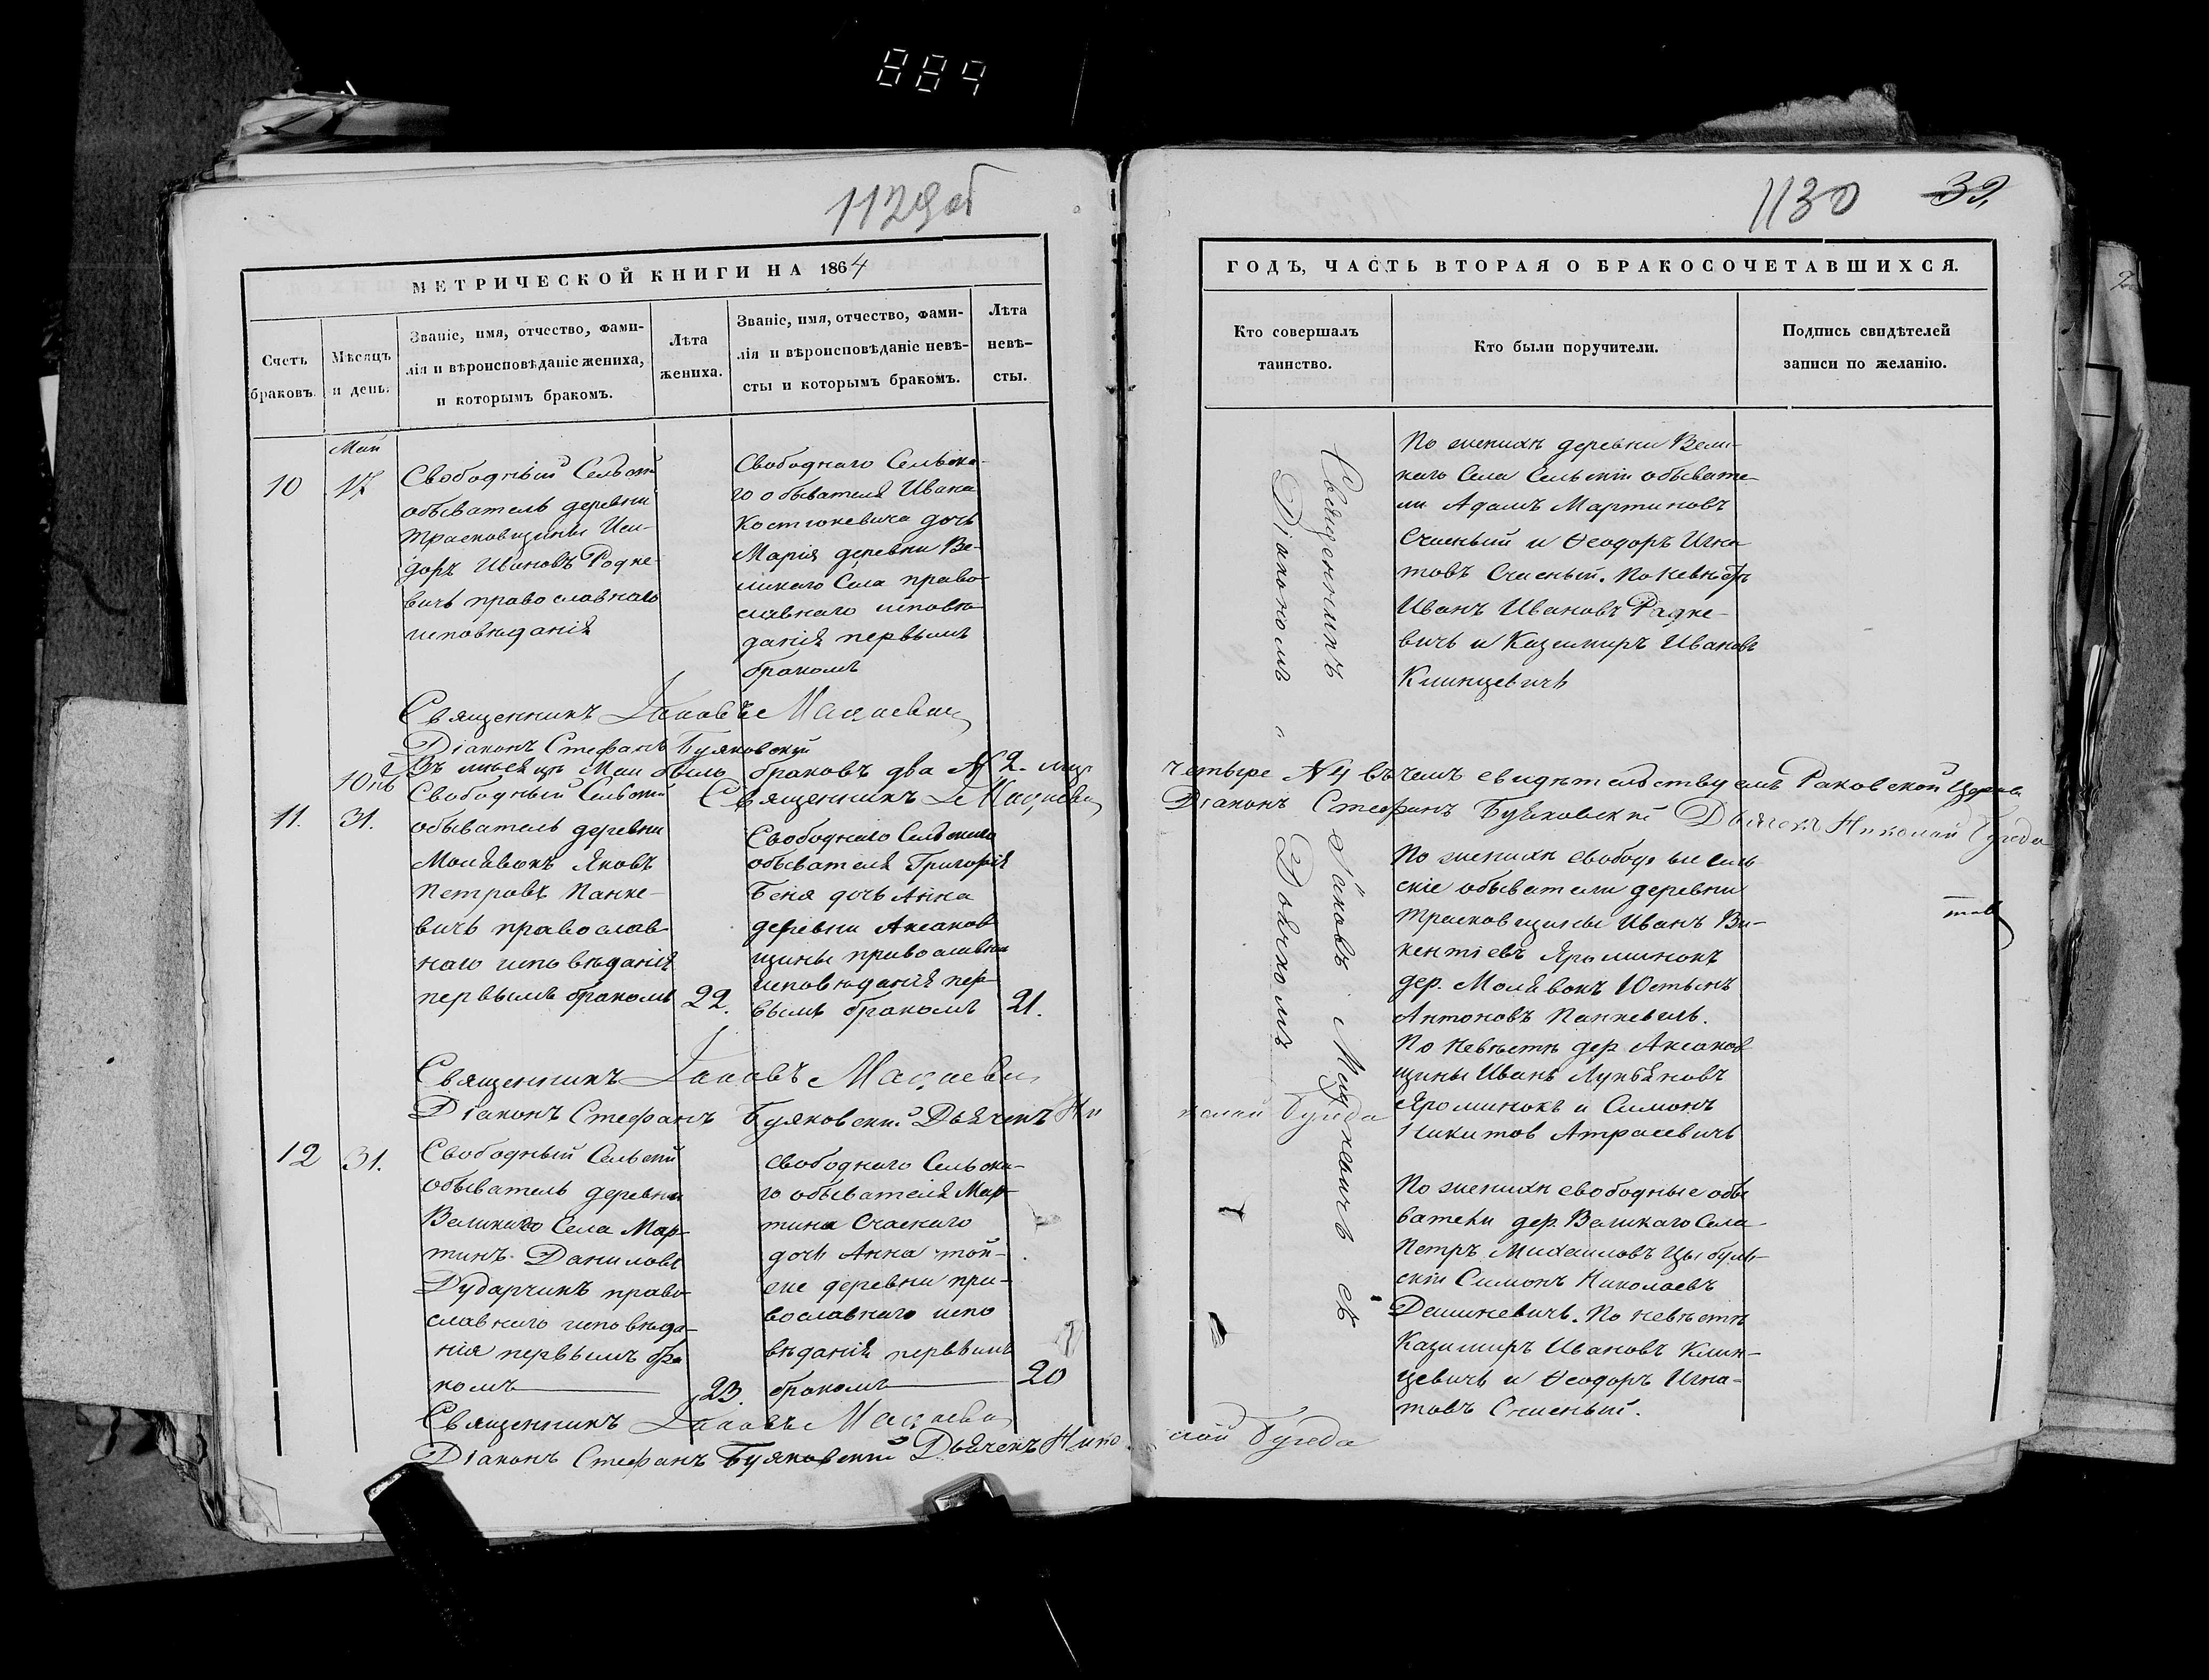 889
1129об
МЕТРИЧЕСКОЙ КНИГИ НА 1864
Счетъ браковъ.
Мѣсяцъ и день.
Званіе, имя, отчество, фами-
лія и вѣроисповѣданіе жениха,
и которымъ бракомъ.
Лѣта
жениха.
Званіе, имя, отчество, фами-
лія и вѣроисповѣданіе невѣ-
сты и которымъ бракомъ.
Лѣта
невѣ-
сты.
Май
10
17
Свободный Сельскій
обыватель деревни
Траськовщины Иси-
доръ Ивановъ Родке-
вичъ православнаго
исповѣданія
Свободнаго Сельска-
го обывателя Ивана
Костюкевича дочь
Марія деревни Ве-
ликаго Села право-
славнаго исповѣ-
данія первымъ
бракомъ
Священникъ Іаковъ
Діаконъ Стефанъ Буяковскій
Въ мѣсяцѣ Маи было браковъ два № 2.
11.
31.
Свободный Сельскій
обыватель деревни
Молявокъ Яковъ
Петровъ Панке-
вичъ православ-
наго исповѣданія
первымъ бракомъ
22.
Священникъ
Свободнаго Сельскаго
обывателя Григорія
Беня дочь Анна
деревни Аксаков
щины православна
исповѣданія пер-
вымъ бракомъ
21.
Священникъ Іаковъ
Діаконъ Стефанъ Буяковскій Дьячекъ Ни
12
31.
Свободный Сельскій
обыватель деревни
Великаго Села Мар-
тинъ Даниловъ
Дударчикъ право-
славнаго исповѣда-
нія первымъ бра
комъ
23.
Свободнаго Сельска-
го обывателя Мар-
тина Счаснаго
дочь Анна той-
же деревни пра-
вославнаго испо
вѣданія первымъ
бракомъ
20
Священникъ Іаковъ
Діаконъ Стефанъ Буяковскій Дьячекъ Нико
1130
32
ГОДЪ, ЧАСТЬ ВТОРАЯ О БРАКОСОЧЕТАВШИХСЯ.
Кто совершалъ
таинство.
Кто были поручители.
Подпись свидѣтелей
записи по желанію.
Священникъ Іаковъ съ
Діакономъ и Дьячкомъ
По женихѣ деревни Вели-
каго Села Сельскіи обывате-
ли Адамъ Мартиновъ
Счасный и Ѳеодоръ Игна
товъ Счасный. По невѣстѣ
Иванъ Ивановъ Радке-
вичъ и Казимиръ Ивановъ
Клинцевичъ
четыре № 4 въ чемъ свидѣтельствуемъ Раковской Церкви
Діаконъ Стефанъ Буяковскій Дьячекъ Николай
По женихѣ свободные сель
скіе обыватели деревни
Траськовщины Иванъ Ви-
кентіевъ Яроминокъ
дер. Молявокъ Юстынъ
Антоновъ Панкевичъ.
По Невѣстѣ дер Аксаков
щины Иванъ Лукьяновъ
Яроминокъ и Симонъ
Никитов Атрасевичъ
колай
По женихѣ свободные обы
ватели дер Великаго Села
Петръ Михаиловъ Цыбуль-
скіи Симонъ Николаевъ
Дешкевичъ. По невѣстѣ
Казимиръ Ивановъ Клин-
цевичъ и Ѳеодоръ Игна-
товъ Счасный.
лай